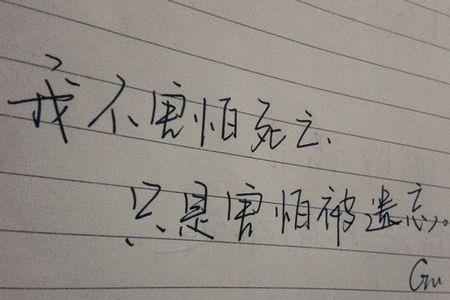 我不害怕死亡.
只是害怕被遗忘。